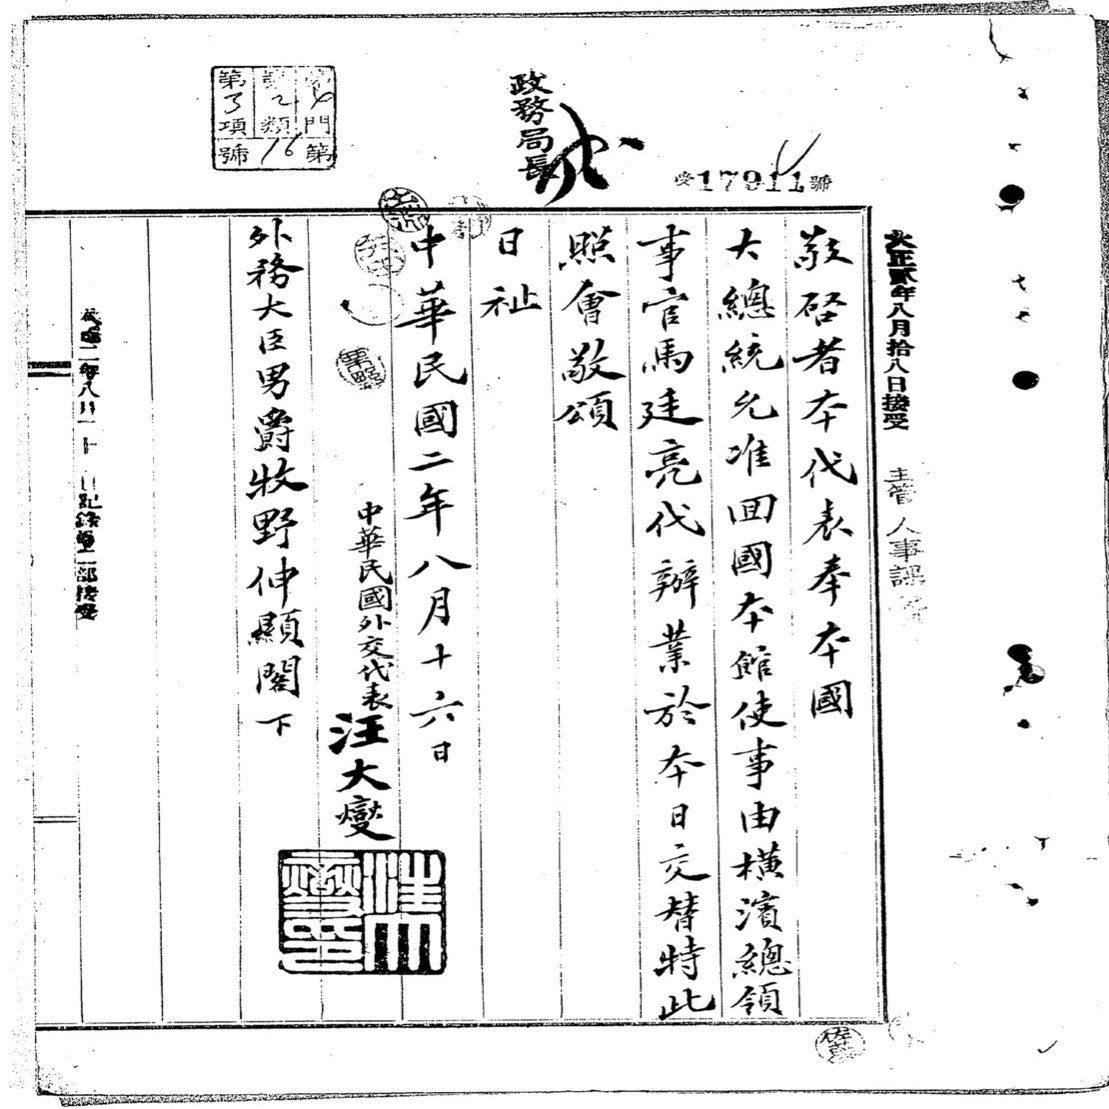 政務局長
受17911號
第6門第
類
第3項
16號
大正貳年八月拾八日接受
主管 人事課
敬啓者本代表奉本國
大總統允准回國本館使事由橫濱總領
事官馬廷亮代辦業於本日交替特此
照會敬頌
日祉
中華民國二年八月十六日
中華民國外交代表汪大燮
汪大燮印
外務大臣男爵牧野伸顯閣下